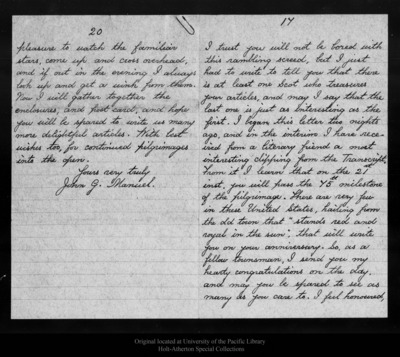 20
pleasure to watch the familiar
stars, come up and cross overhead,
and if out in the evening I always
look up and get a wink from them.
Now I will gather together the
enclosures, and post card, and hope
you will be spared to write us many
more delightful articles. With best
wishes too, for continued pilgrimages
into the open.
Yours very truly
John G.
17
I trust you will not be bored with
this rambling screed, but I just
had to write to tell you that there
is at least one Scot who treasures
your articles, and may I say that the
last one is just as interesting as the
first. I began this letter two nights
ago, and in the interim I have rece-
ived from a literary friend a most
interesting clipping from the Transcript,
from it I learn that on the 21st
inst, you will pass the 75th milestone
of the pilgrimage. There are very few
in these United States, hailing from
the old town that "stands red and
royal in the sun", that will write
you on your anniversary. So, as a
fellow townsman, I send you my
hearty congratulations on the day,
and may you be spared to see as
many as you care to. I feel honoured,
Original located at University of the Pacific Library
Holt-Atherton Special Collections